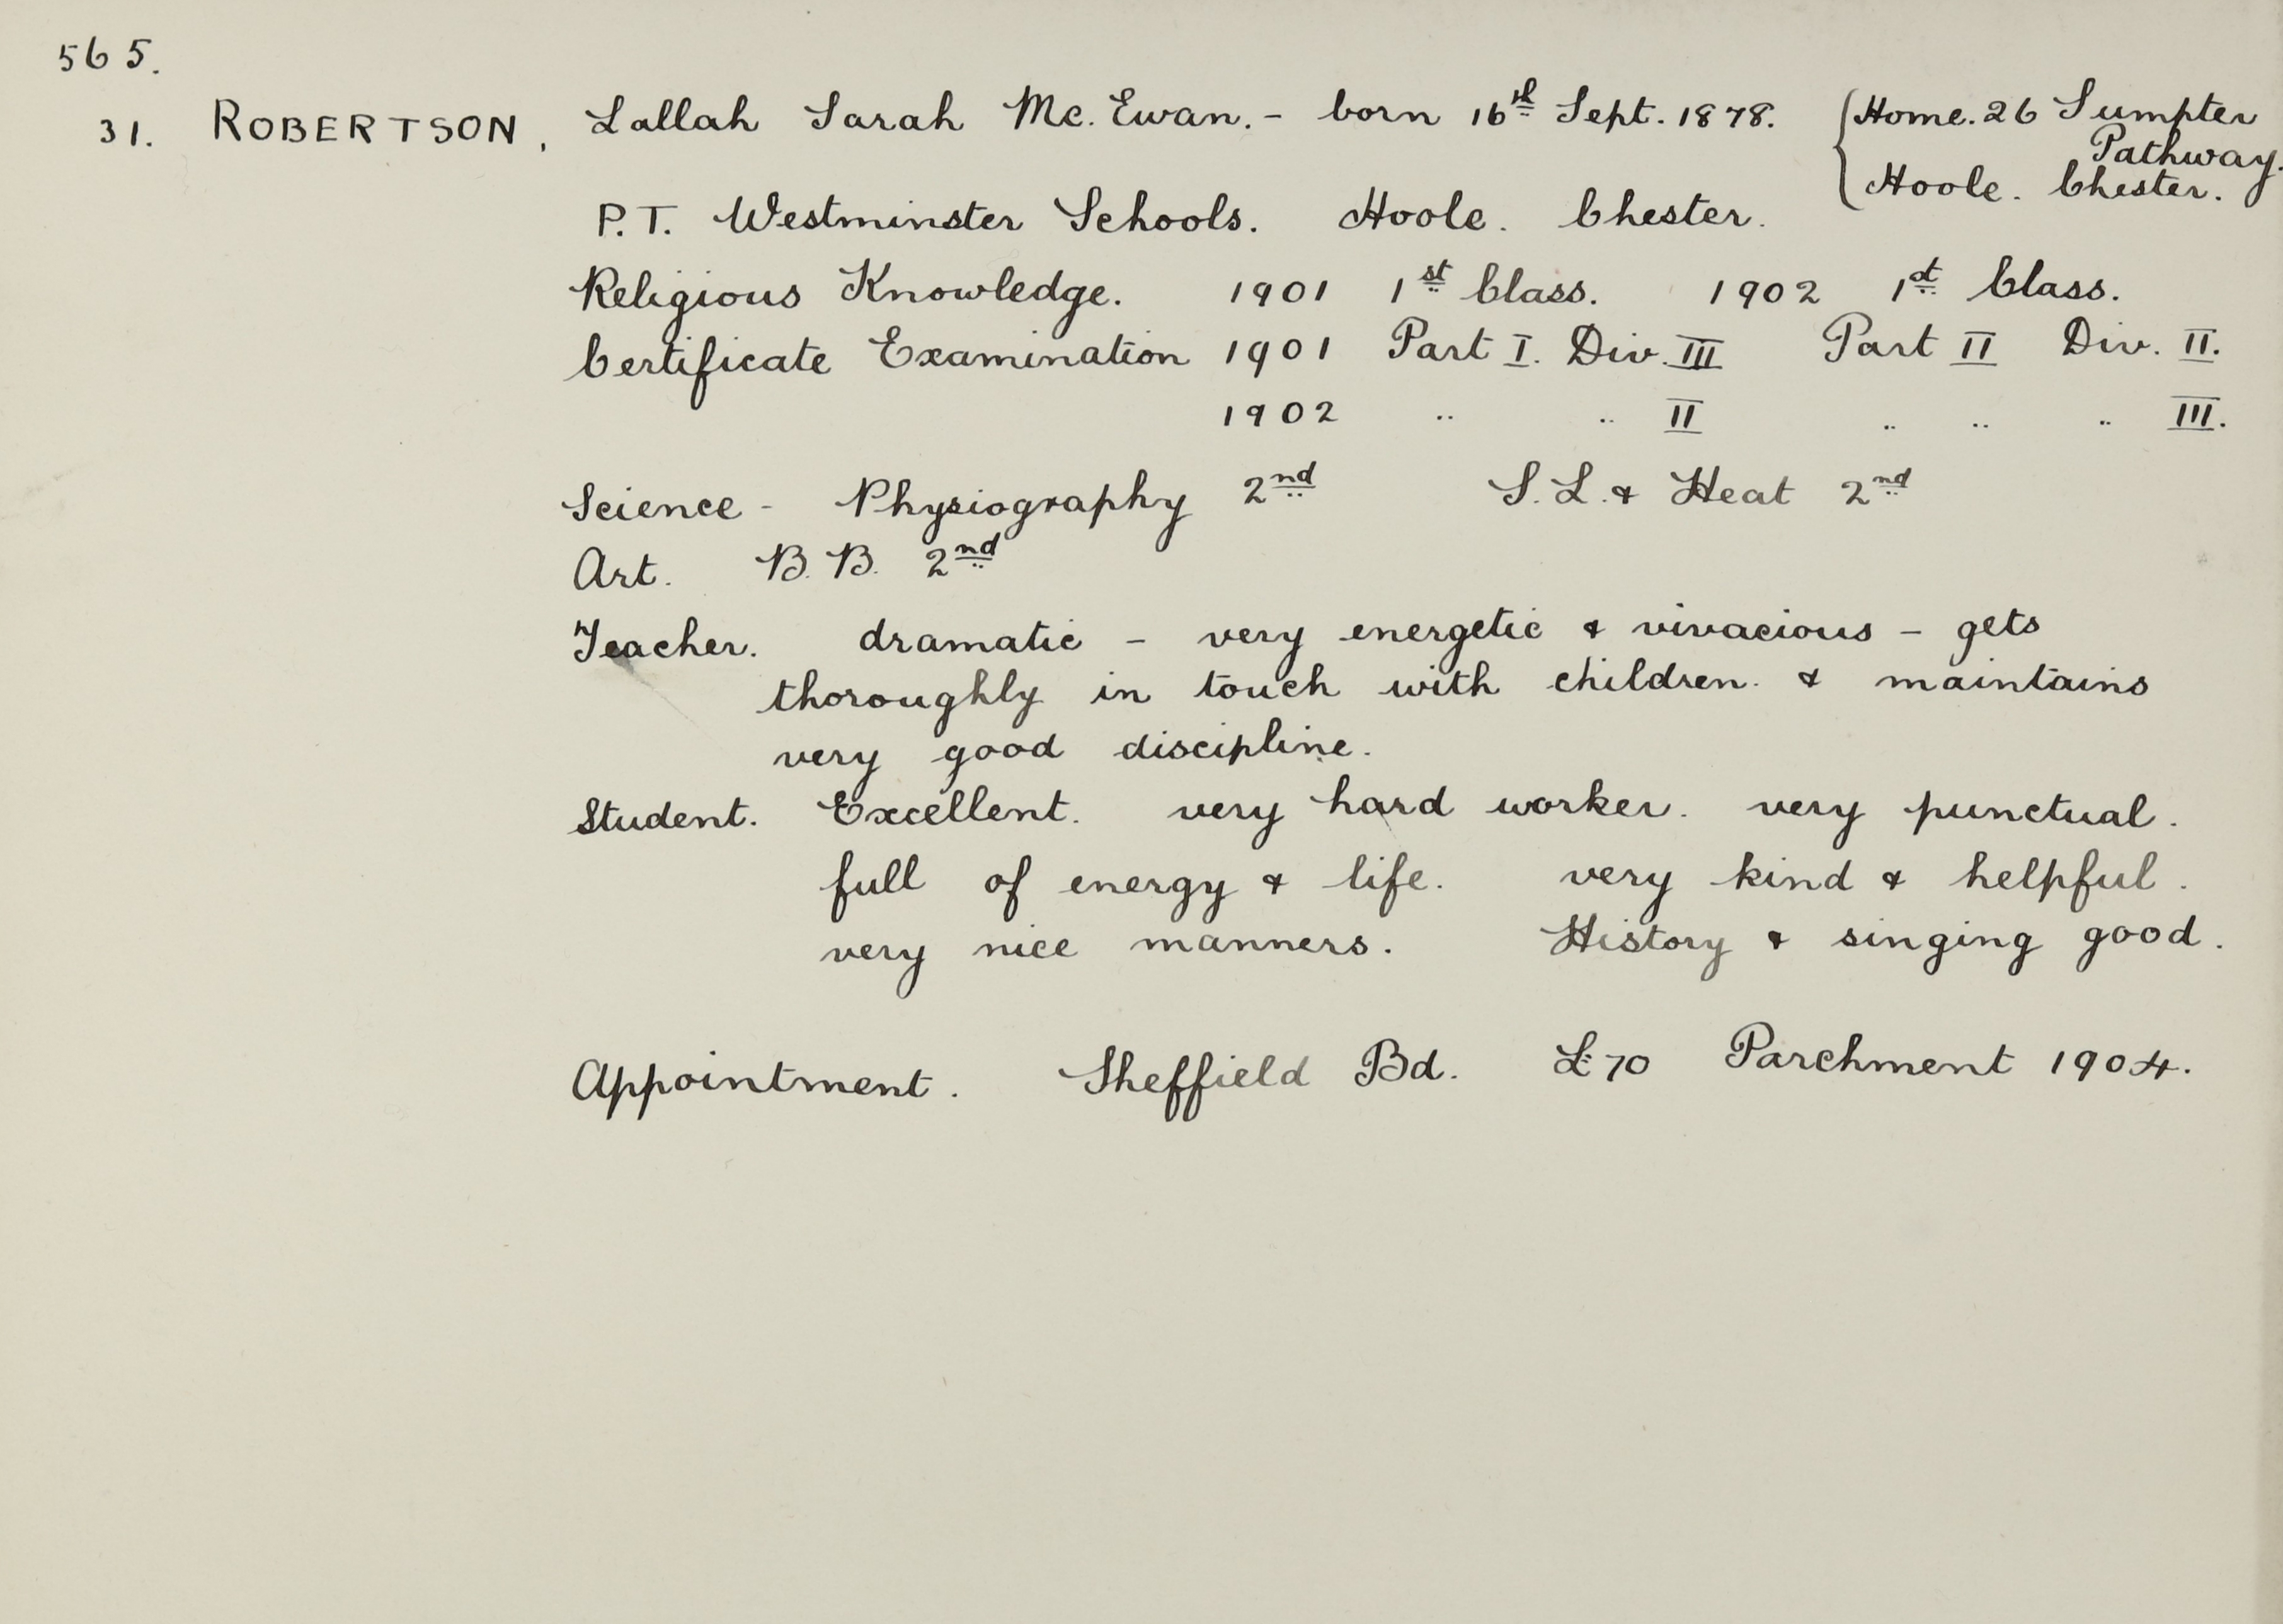 565.
31. ROBERTSON, Lallah Sarah Mc. Ewan. - born 16th Sept. 1878. {Home. 26 Sumpter
Pathway.
Hoole. Chester.
P.T. Westminster Schools. Hoole. Chester.
Religious Knowledge. 1901 1st Class. 1902 1st Class.
Certificate Examination 1901 Part I. Div. III Part II Div. II.
1902 .. .. II .. .. .. III.
Science - Physiography 2nd S.L. & Heat 2nd
Art. B.B. 2nd
Teacher. dramatic - very energetic & vivacious - gets
thoroughly in touch with children. & maintains
very good discipline.
Student. Excellent. very hard worker. very punctual.
full of energy & life. very kind & helpful.
very nice manners. History & singing good.
Appointment. Sheffield Bd. £70 Parchment 1904.